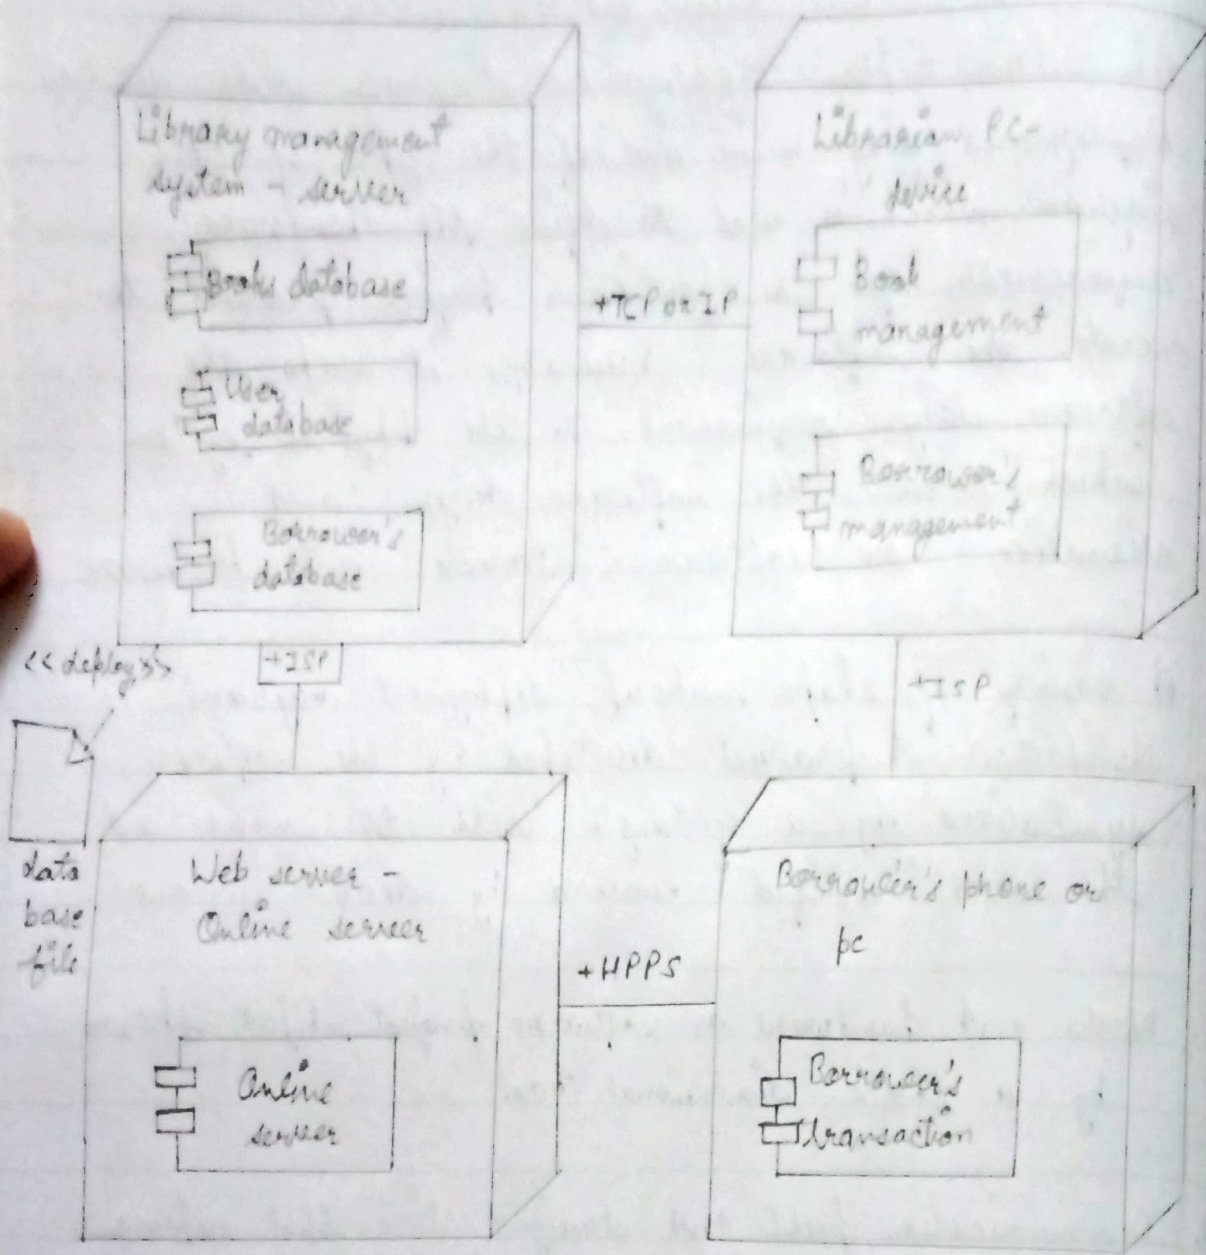 Library management
system - server
Books database
User
database
Borrower's
database
+TCP or IP
Librarian PC-
device
Book
management
Borrower's
management
<<deploy>>
+ISP
+ISP
data
base
file
Web server -
Online server
Online
server
+HPPS
Borrower's phone or
pc
Borrower's
transaction